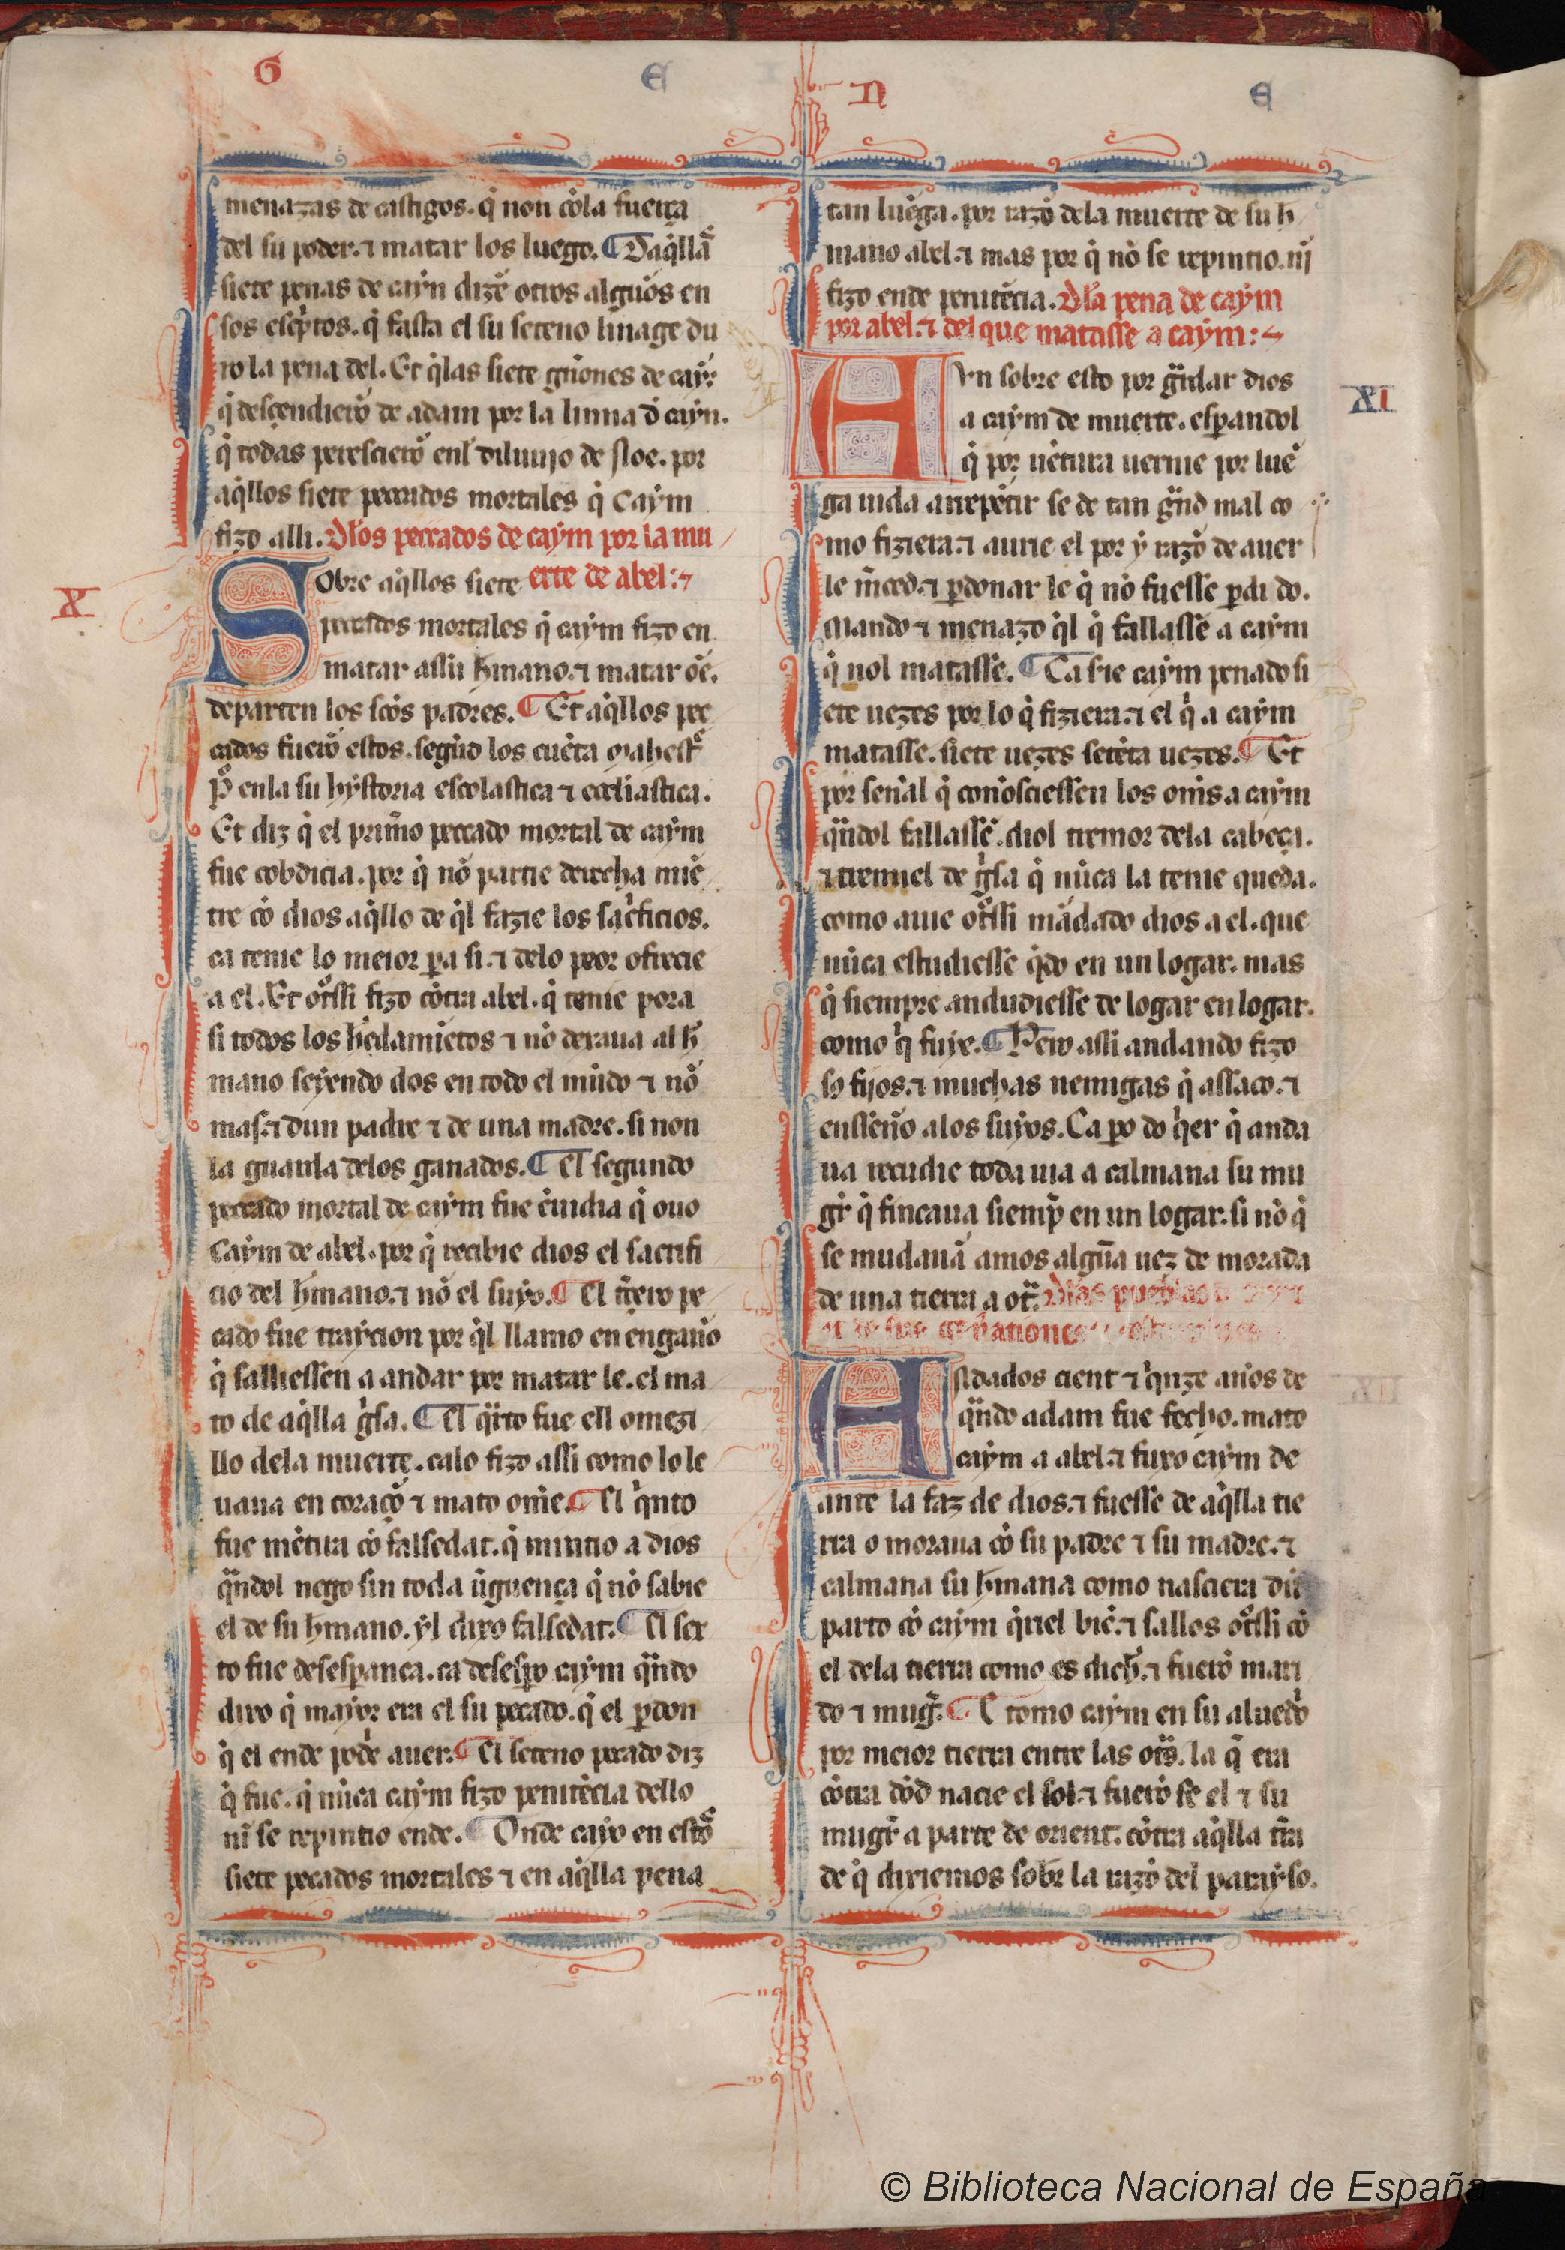 G E N E
menazas de castigos. q̃ non cõla fuerça
del su poder. ⁊ matar los luego. ¶ Daq̃llas
siete penas de caȳn dizẽ otros alguõs en
sos esc̃ptos. q̃ fasta el su seteno linage du
ro la pena del. Et q̃las siete gñones de caȳ
q̃ desçendierõ de adam por la linna d̃ caȳn.
q̃ todas perescierõ enl diluuio de Noe. por
aq̃llos siete peccados mortales q̃ Caẏm
fizo alli. Dlos peccados de caẏm por la mu
erte de abel:
X
Sobre aq̃llos siete
peccados mortales q̃ caẏm fizo en
matar assu h̃mano. ⁊ matar oẽ.
departen los sc̃os padres. ¶ Et aq̃llos pec
cados fuerõ estos. segũd los cuẽta Mahestr̃
P̃ enla su hẏstoria escolastica ⁊ ecclesiastica.
Et diz q̃ el prim̃o peccado mortal de caẏm
fue cobdicia. por q̃ nõ partie derecha miẽ
tre cõ dios aq̃llo de q̃l fazie los sac̃ficios.
ca tenie lo meior pa si. ⁊ delo peor ofrecie
a el. Et ot̃ssi fizo cõtra abel. q̃ tenie pora
si todos los h̃edamiẽtos ⁊ nõ dexaua al h̃
mano seẏendo dos en todo el mũdo ⁊ nõ
mas. ⁊ dun padre ⁊ de una madre. si non
la guarda delos ganados. ¶ El segundo
peccado mortal de caẏm fue ẽuidia q̃ ouo
Caẏm de abel. por q̃ recibie dios el sacrifi
cio del h̃mano. ⁊ nõ el suẏo. ¶ El t̃cero pe
cado fue traẏcion por q̃l llamo en engaño
q̃ salliessen a andar por matar le. el ma
to de aq̃lla g̃sa. ¶ El q̃rto fue ell omezi
llo dela muerte. calo fizo assi como lo le
uaua en coraçõ ⁊ mato om̃e. ¶ El q̃nto
fue mẽtira cõ falsedat. q̃ mintio a dios
q̃ndol nego sin toda ũguença q̃ nõ sabie
el de su h̃mano. ẏl dixo falsedat. ¶ El sex
to fue desesperança. ca desespo caẏm q̃ndo
dixo q̃ mayor era el su peccado. q̃ el pdon
q̃ el ende podrẽ auer. ¶ El seteno pecado diz
q̃ fue. q̃ nũca caẏm fizo penitẽcia dello
nĩ se repintio ende. ¶ Onde caẏo en estõs
siete pecados mortales ⁊ en aq̃lla pena
tan luẽga. por razõ dela muerte de su h̃
mano abel. ⁊ mas por q̃ nõ se repintio. nĩ
fizo ende penitẽcia. Dla pena de caẏm
por abel. ⁊ del que matasse a caẏm:
XI
Avn sobre esto por g̃rdar dios
a caẏm de muerte. esp̃andol
q̃ por uẽtura uernie por luẽ
ga uida arrepẽtir se de tan g̃nd mal co
mo fiziera. ⁊ aurie el por ẏ razõ de auer
le m̃ced. ⁊ pdonar le q̃ nõ fuesse pdi do.
Mando ⁊ menazo q̃l q̃ fallasse a caẏm
q̃ nol matasse. ¶ Ca sie caẏm penado si
ete uezes por lo q̃ fiziera. ⁊ el q̃ a caẏm
matasse. siete uezes setẽta uezes. ¶ Et
por señal q̃ conosciessen los om̃s a caẏm
q̃ndol fallassẽ. diol tremor dela cabeça.
⁊ tremiel de g̃sa q̃ nũca la tenie queda.
como auie ot̃ssi mãdado dios a el. que
nũca estudiesse q̃do en un logar. mas
q̃ siempre andudiesse de logar en logar.
como q̃ fuẏe. ¶ Pero assi andando fizo
so fijos. ⁊ muchas nemigas q̃ assaco. ⁊
enseño alos suẏos. Ca po do q̃er q̃ anda
ua recudie toda uia a calmana su mu
gr̃ q̃ fincaua siemp̃ en un logar. si nõ q̃
se mudauã amos algũa uez de morada
de una tierra a ot̃.
Andados cient ⁊ q̃nze años de
q̃ndo adam fue fecho. mato
caẏm a abel. ⁊ fuxo caẏm de
ante la faz de dios. ⁊ fuesse de aq̃lla tie
rra o moraua cõ su padre ⁊ su madre. ⁊
calmana su h̃mana como nasciera dũ
parto cõ caẏm q̃riel biẽ. ⁊ fallos ot̃ssi cõ
el dela tierra como es dich̃. ⁊ fuerõ mari
do ⁊ mug̃r. ¶ E tomo caẏm en su aluedõ
por meior tierra entre las ot̃s. la q̃ era
cõtra dõd nacie el sol. ⁊ fuerõ se el ⁊ su
mugr̃ a parte de orient. cõtra aq̃lla t̃ra
de q̃ dixiemos sobr̃ la razõ del paraẏso.
© Biblioteca Nacional de España